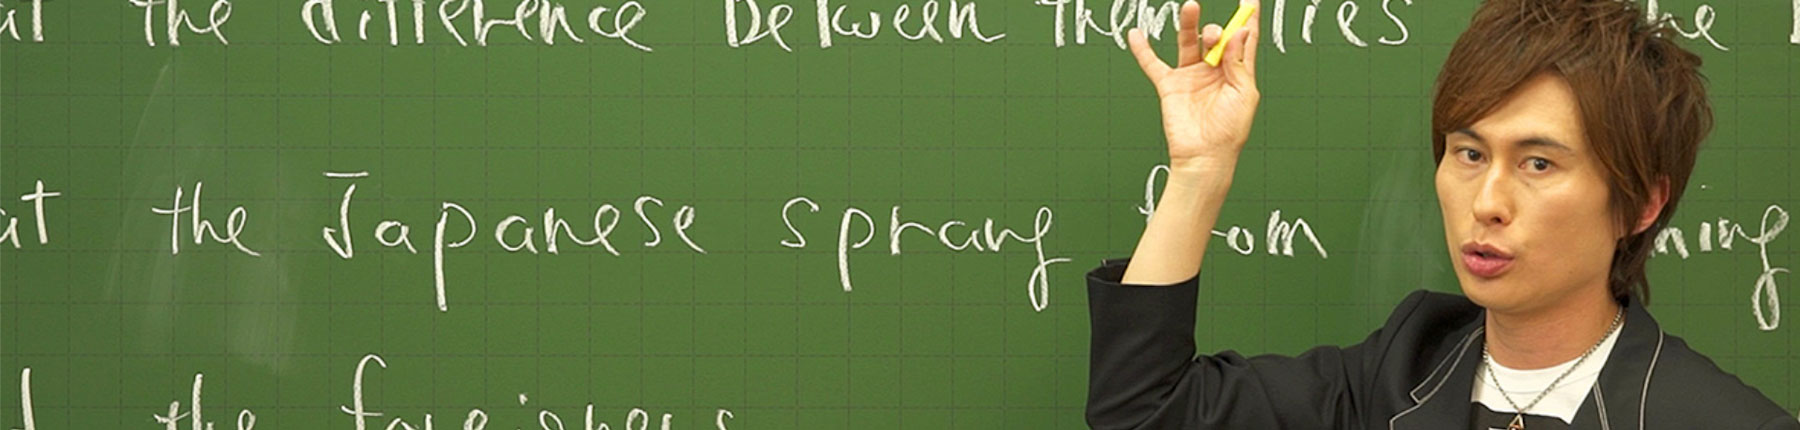 at the difference between them lies the
at the Japanese sprang from
the foreigners